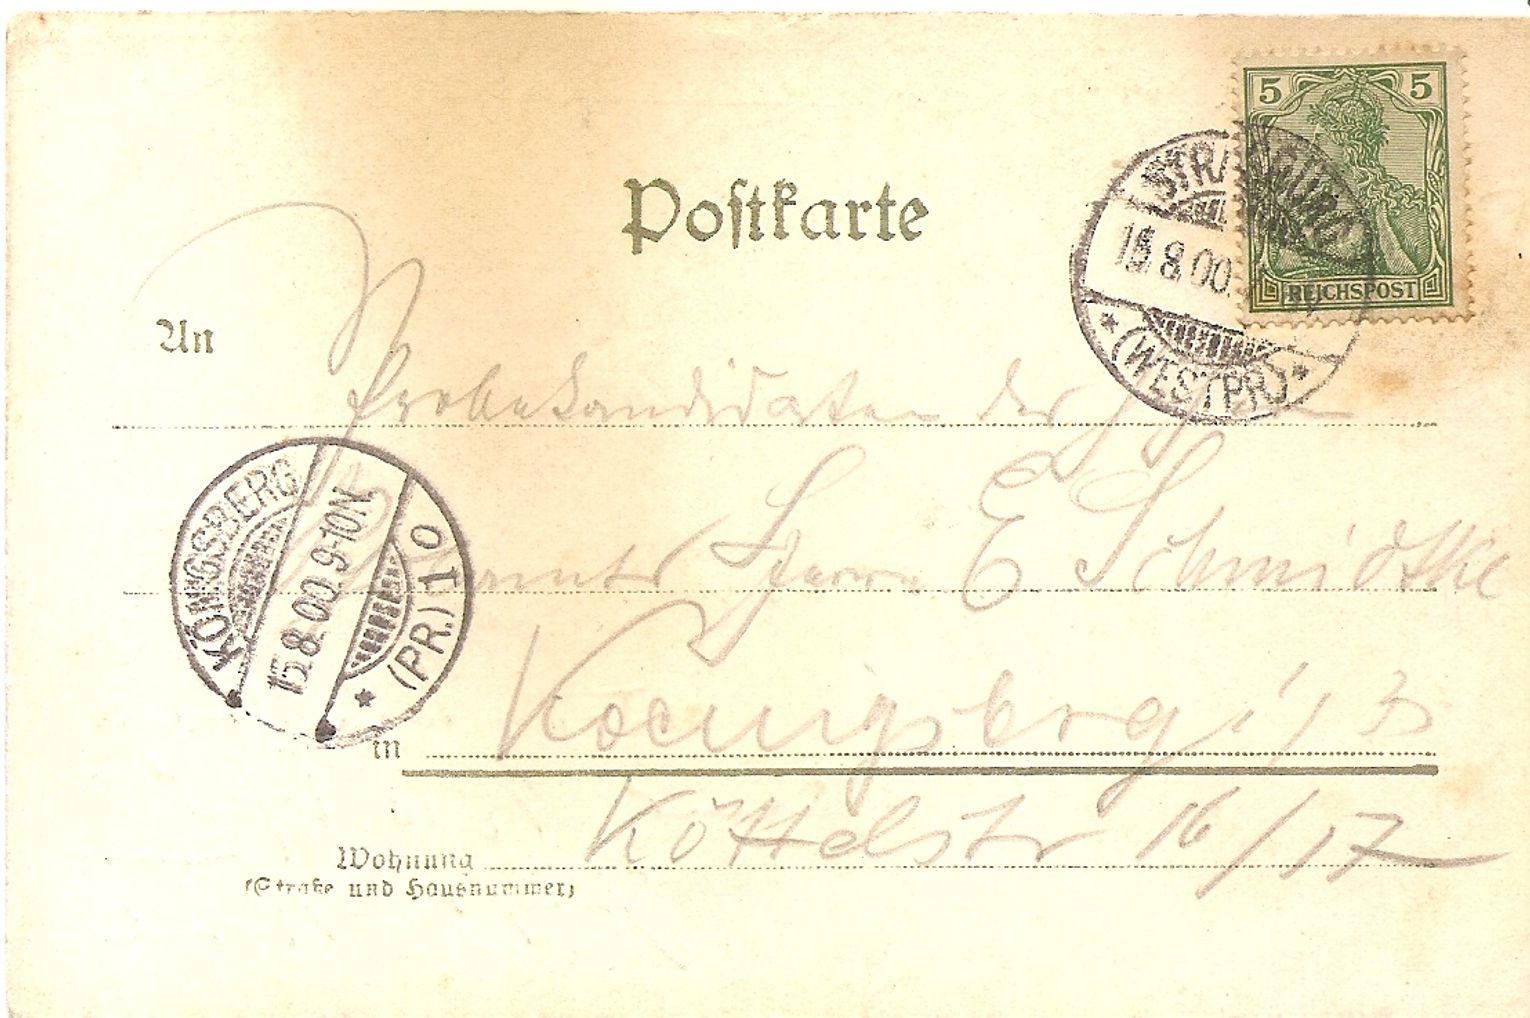 5 5
REICHSPOST
STRASBURG
15.8.00.
* (WESTPR) *
Postkarte
An
Probekandidaten der
Herrn E Schmidtke
KÖNIGSBERG
15.8.00. 9-10N.
* (PR.) 1 0
in Koenigsberg i/
Wohnung Köttelstr 16/17
(Straße und Hausnummer)